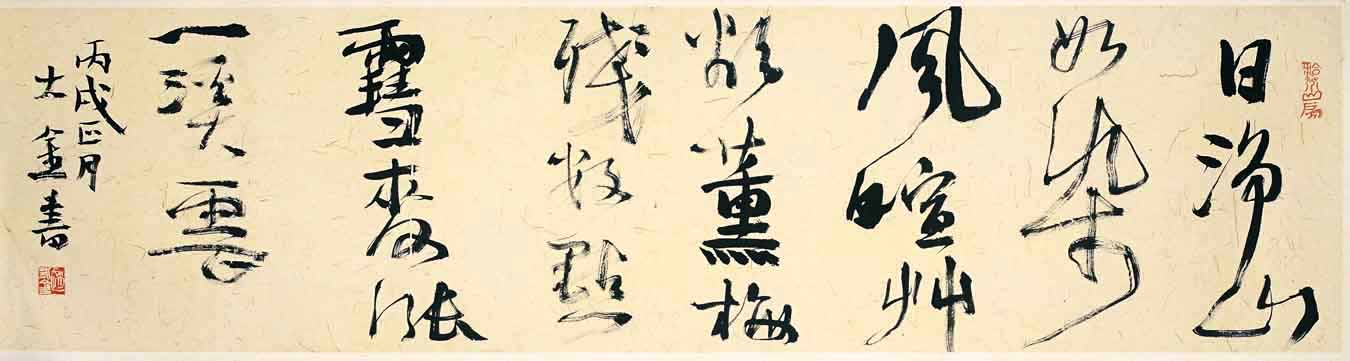 日淨山
如染
風暄艸
欲薰梅
殘數點
雪麥漲
一溪雲
丙戌正月
士金書